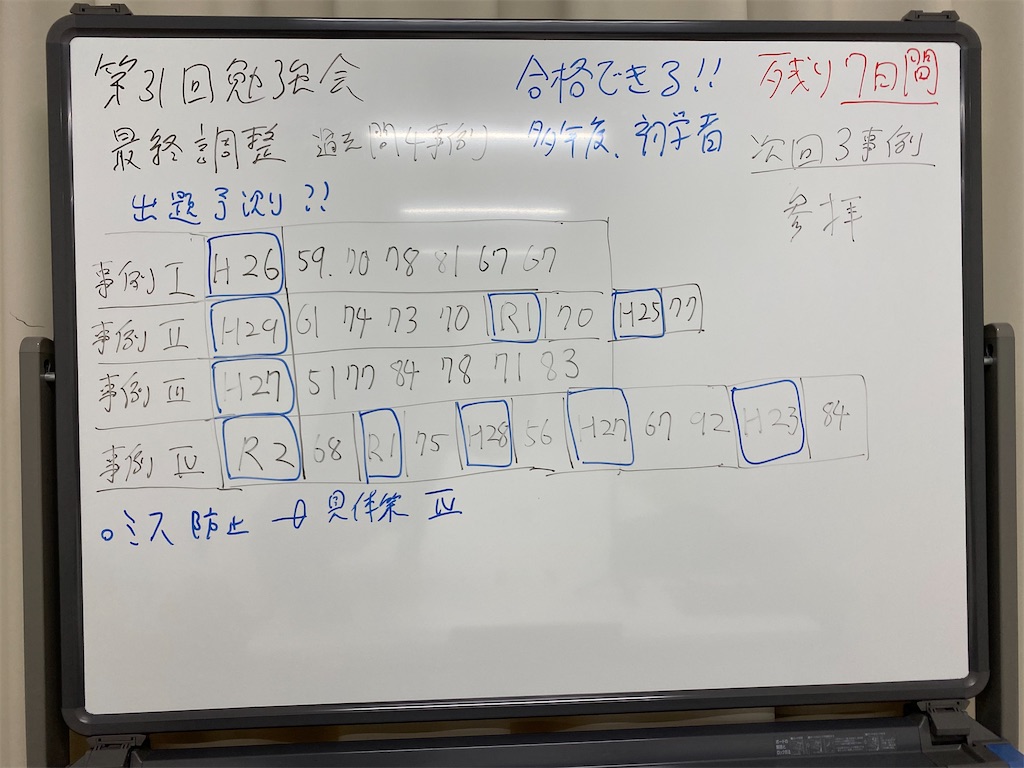 第31回勉強会
合格できる!!
残り7日間
最終調整 過去問4事例
多年度、初学者
次回3事例
参拝
出題予測り??
事例Ⅰ H26 59. 70 78 81 67 67
事例Ⅱ H29 61 74 73 70 R1 70 H25 77
事例Ⅲ H27 51 77 84 78 71 83
事例Ⅳ R2 68 R1 75 H28 56 H27 67 92 H23 84
○ミス防止 → 具体策 Ⅳ